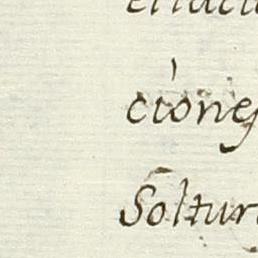 ciones
Soltur